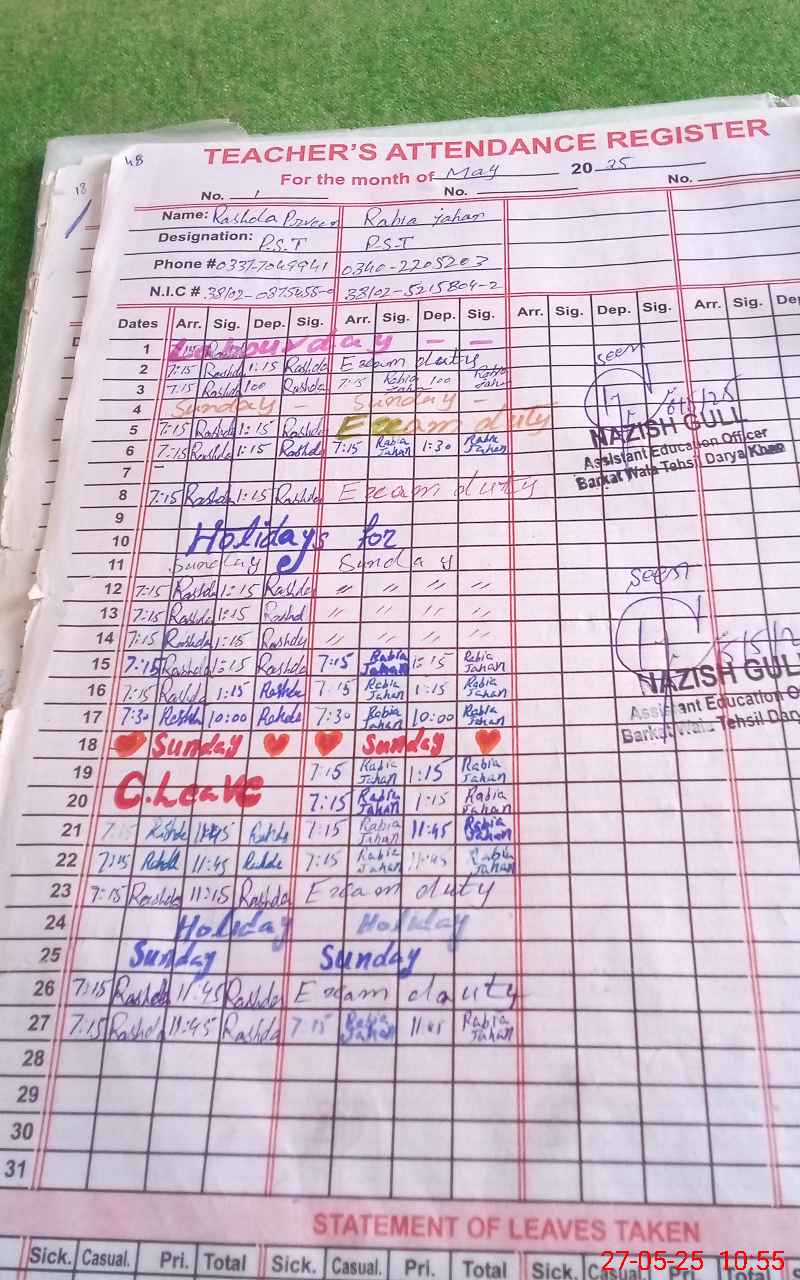 48
TEACHER'S ATTENDANCE REGISTER
18
For the month of May 2025
No. 1 No. No.
Name: Rashda Parveen Rabia jahan
Designation: P.S.T P.S.T
Phone # 0337-7049941 0340-2205203
N.I.C # 38102-5215804-2
Dates Arr. Sig. Dep. Sig. Arr. Sig. Dep. Sig. Arr. Sig. Dep. Sig. Arr. Sig. Dep
1 Labour day - -
2 7:15 Rashda 1:15 Rashda Exam duty
seen
3 7:15 Rashda 100 Rashda 7:15 Rabia Jahan 100 Rabia Jahan
4 Sunday - Sunday -
5 7:15 Rashda 1:15 Rashda Exam duty
NAZISH GULL
6 7:15 Rashda 1:15 Rashda 7:15 Rabia Jahan 1:30 Rabia Jahan
Assistant Education Officer
7
Barkat Wala Tehsil Darya Khan
8 7:15 Rashda 1:15 Rashda Exam duty
9
10 Holidays for
11 Sunday Sunday
seen
12 7:15 Rashda 1:15 Rashda " " " "
13 7:15 Rashda 1:15 Rashd " " " "
14 7:15 Rashda 1:15 Rashda " " " "
15 7:15 Rashda 1:15 Rashda 7:15 Rabia Jahan 1:15 Rabia Jahan
NAZISH GULL
16 7:15 Rashda 1:15 Rashda 7:15 Rabia Jahan 1:15 Rabia Jahan
Assistant Education O
17 7:30 Rashda 10:00 Rahda 7:30 Rabia Jahan 10:00 Rabia Jahan
Barkat Wala Tehsil Dary
18 Sunday Sunday
19 7:15 Rabia Jahan 1:15 Rabia Jahan
C.Leave
20 7:15 Rabia Jahan 1:15 Rabia Jahan
21 7:15 Rashda 11:45 Rashda 7:15 Rabia Jahan 11:45 Rabia Jahan
22 7:15 Rashda 11:45 Rashda 7:15 Rabia Jahan 11:45 Rabia Jahan
23 7:15 Rashda 11:15 Rashda Exam duty
24 Holiday Holiday
25 Sunday Sunday
26 7:15 Rashda 11:45 Rashda Exam dauty
27 7:15 Rashda 11:45 Rashda 7:15 Rabia Jahan 11:45 Rabia Jahan
28
29
30
31
STATEMENT OF LEAVES TAKEN
Sick. Casual. Pri. Total Sick. Casual. Pri. Total Sick. Casual. Pri. Total
27-05-25 10:55